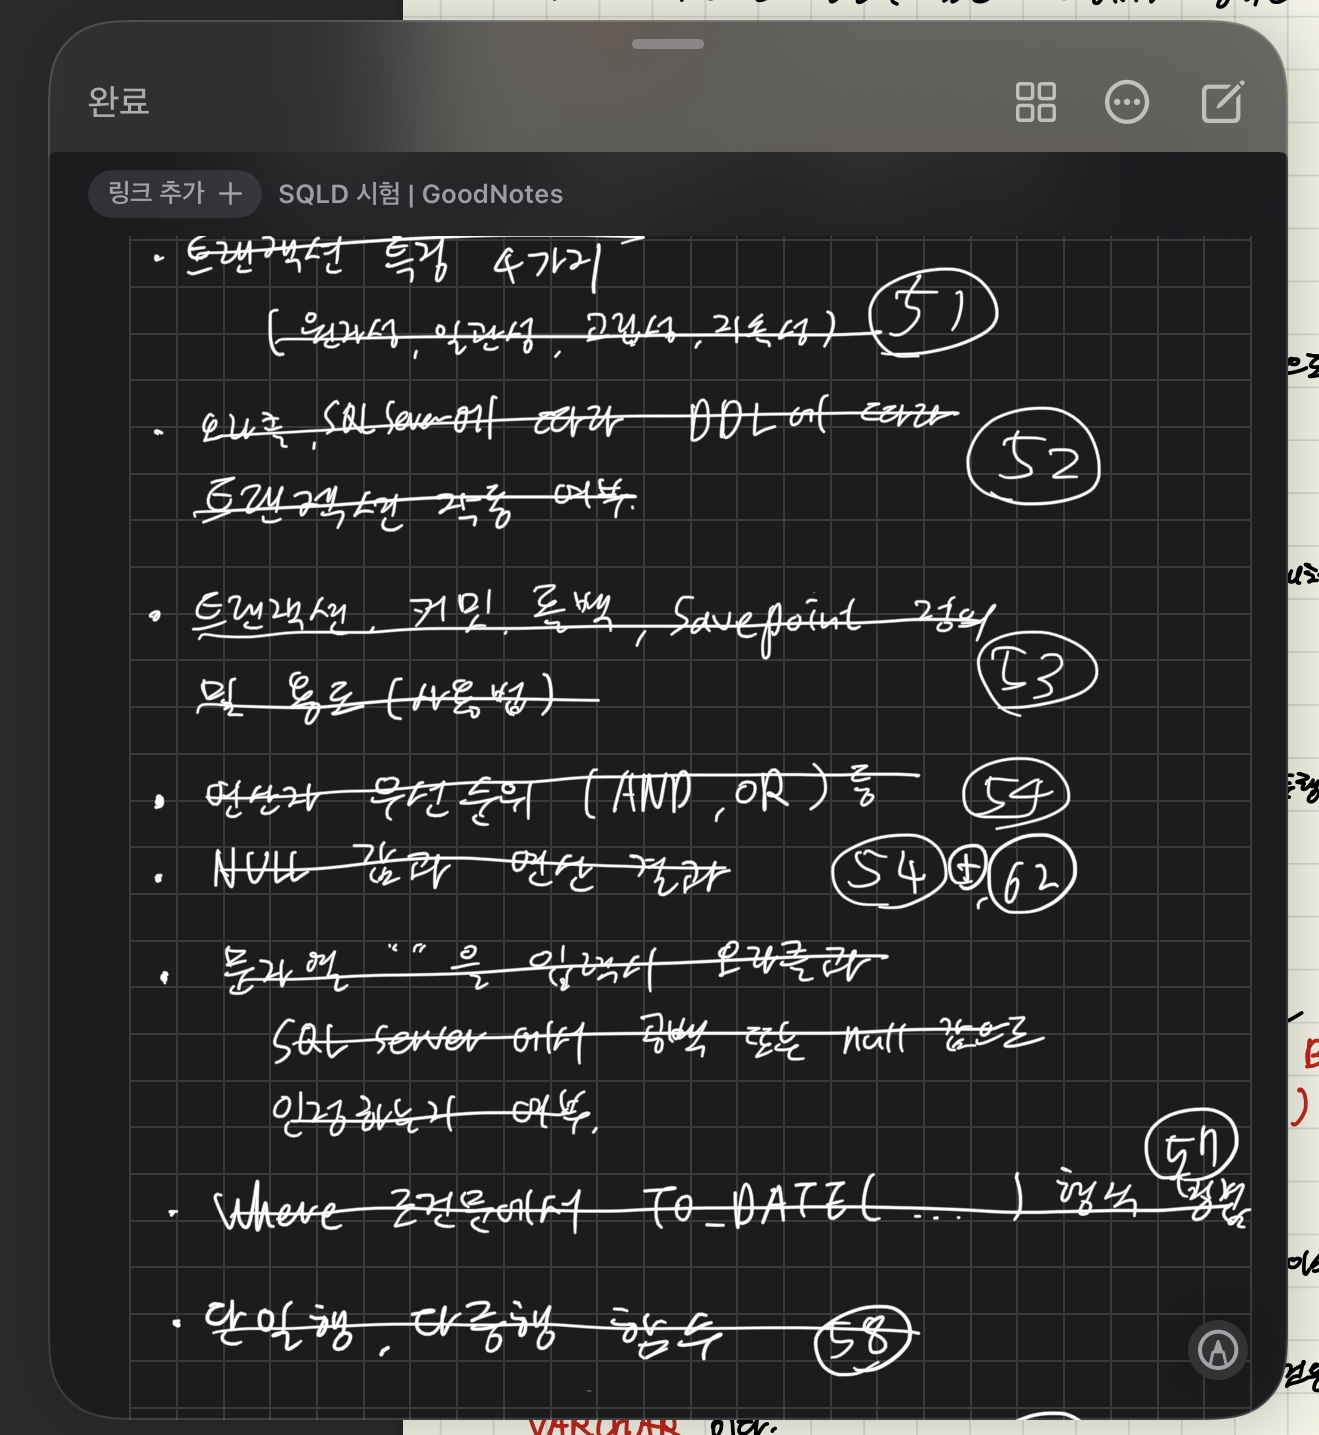 완료
링크 추가 + SQLD 시험 | GoodNotes
· 트랜잭션 특징 4가지
(원자성, 일관성, 고립성, 지속성) 51
· 오라클, SQL Server에 따라 DDL에 따라 52
트랜잭션 작동 여부.
· 트랜잭션, 커밋, 롤백, Savepoint 정의 53
및 용도 (사용법)
· 연산자 우선순위 (AND, OR) 등 54
· NULL 값과 연산 결과 54 + 62
· 문자열 "" 을 입력시 오라클과
SQL Server 에서 공백 또는 null 값으로
인정하는지 여부.
57
· Where 조건문에서 TO_DATE( ... ) 형식
· 단일행, 다중행 함수 58
VARCHAR 이다.